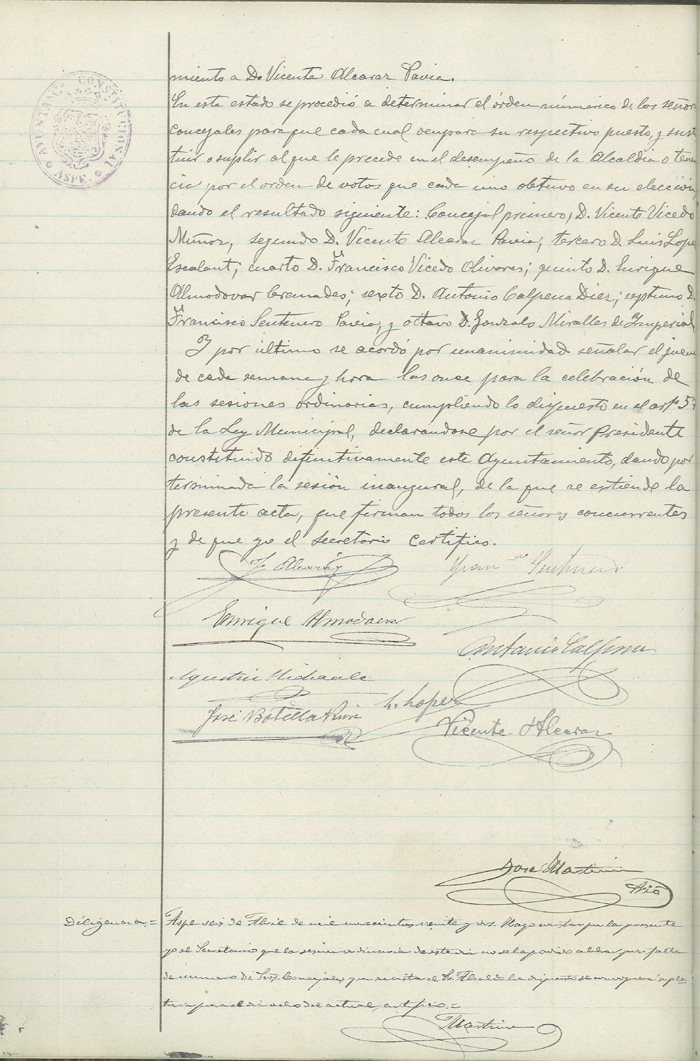 AYUNTAMTO CONSTITUCIONAL
ASPE.
miento a Dn Vicente Alcaraz Pavia.
En este estado se procedió a determinar el órden númerico de los señores
concejales para que cada cual ocupara su respectivo puesto, y susti
tuir o suplir al que le precede en el desempeño de la Alcaldia o tenen
cia, por el orden de votos que cada uno obtuvo en su elección,
dando el resultado siguiente: Concejal primero, D. Vicente Vicedo
Muñoz, segundo D. Vicente Alcaraz Pavia; tercero D. Luis Lope
Escalant; cuarto D. Francisco Vicedo Olivares; quinto D. Enrique
Almodovar Cremades; sexto D. Antonio Calpena Diez; septimo D.
Francisco Sentenero Pavia; y octavo D. Gonzalo Miralles de Imperial
Y por último se acordó por unanimidad señalar el jueves
de cada semana y hora las once para la celebración de
las sesiones ordinarias, cumpliendo lo dispuesto en el artº 5
de la Ley Municipal, declarandose por el señor Presidente
constituido difinitivamente este Ayuntamiento, dando por
terminada la sesión inaugural, de la que se extiende la
presente acta, que firman todos los señores concurrentes
y de que yo el secretario certifico.
Alcaraz
Franco Sentenero
Enrique Almodovar
Antonio Calpena
Agustin
José Botella
L. Lopez
Vicente Alcaraz
José Martinez
Srio
Diligencia = Aspe seis de Abril de mil novecientos veinte y dos. Hago constar por la presente
yo el Secretario que la sesion ordinaria de este dia no se ha podido celebrar por falta
de numero de Sres. Concejales
del actual, certifico. =
Martinez